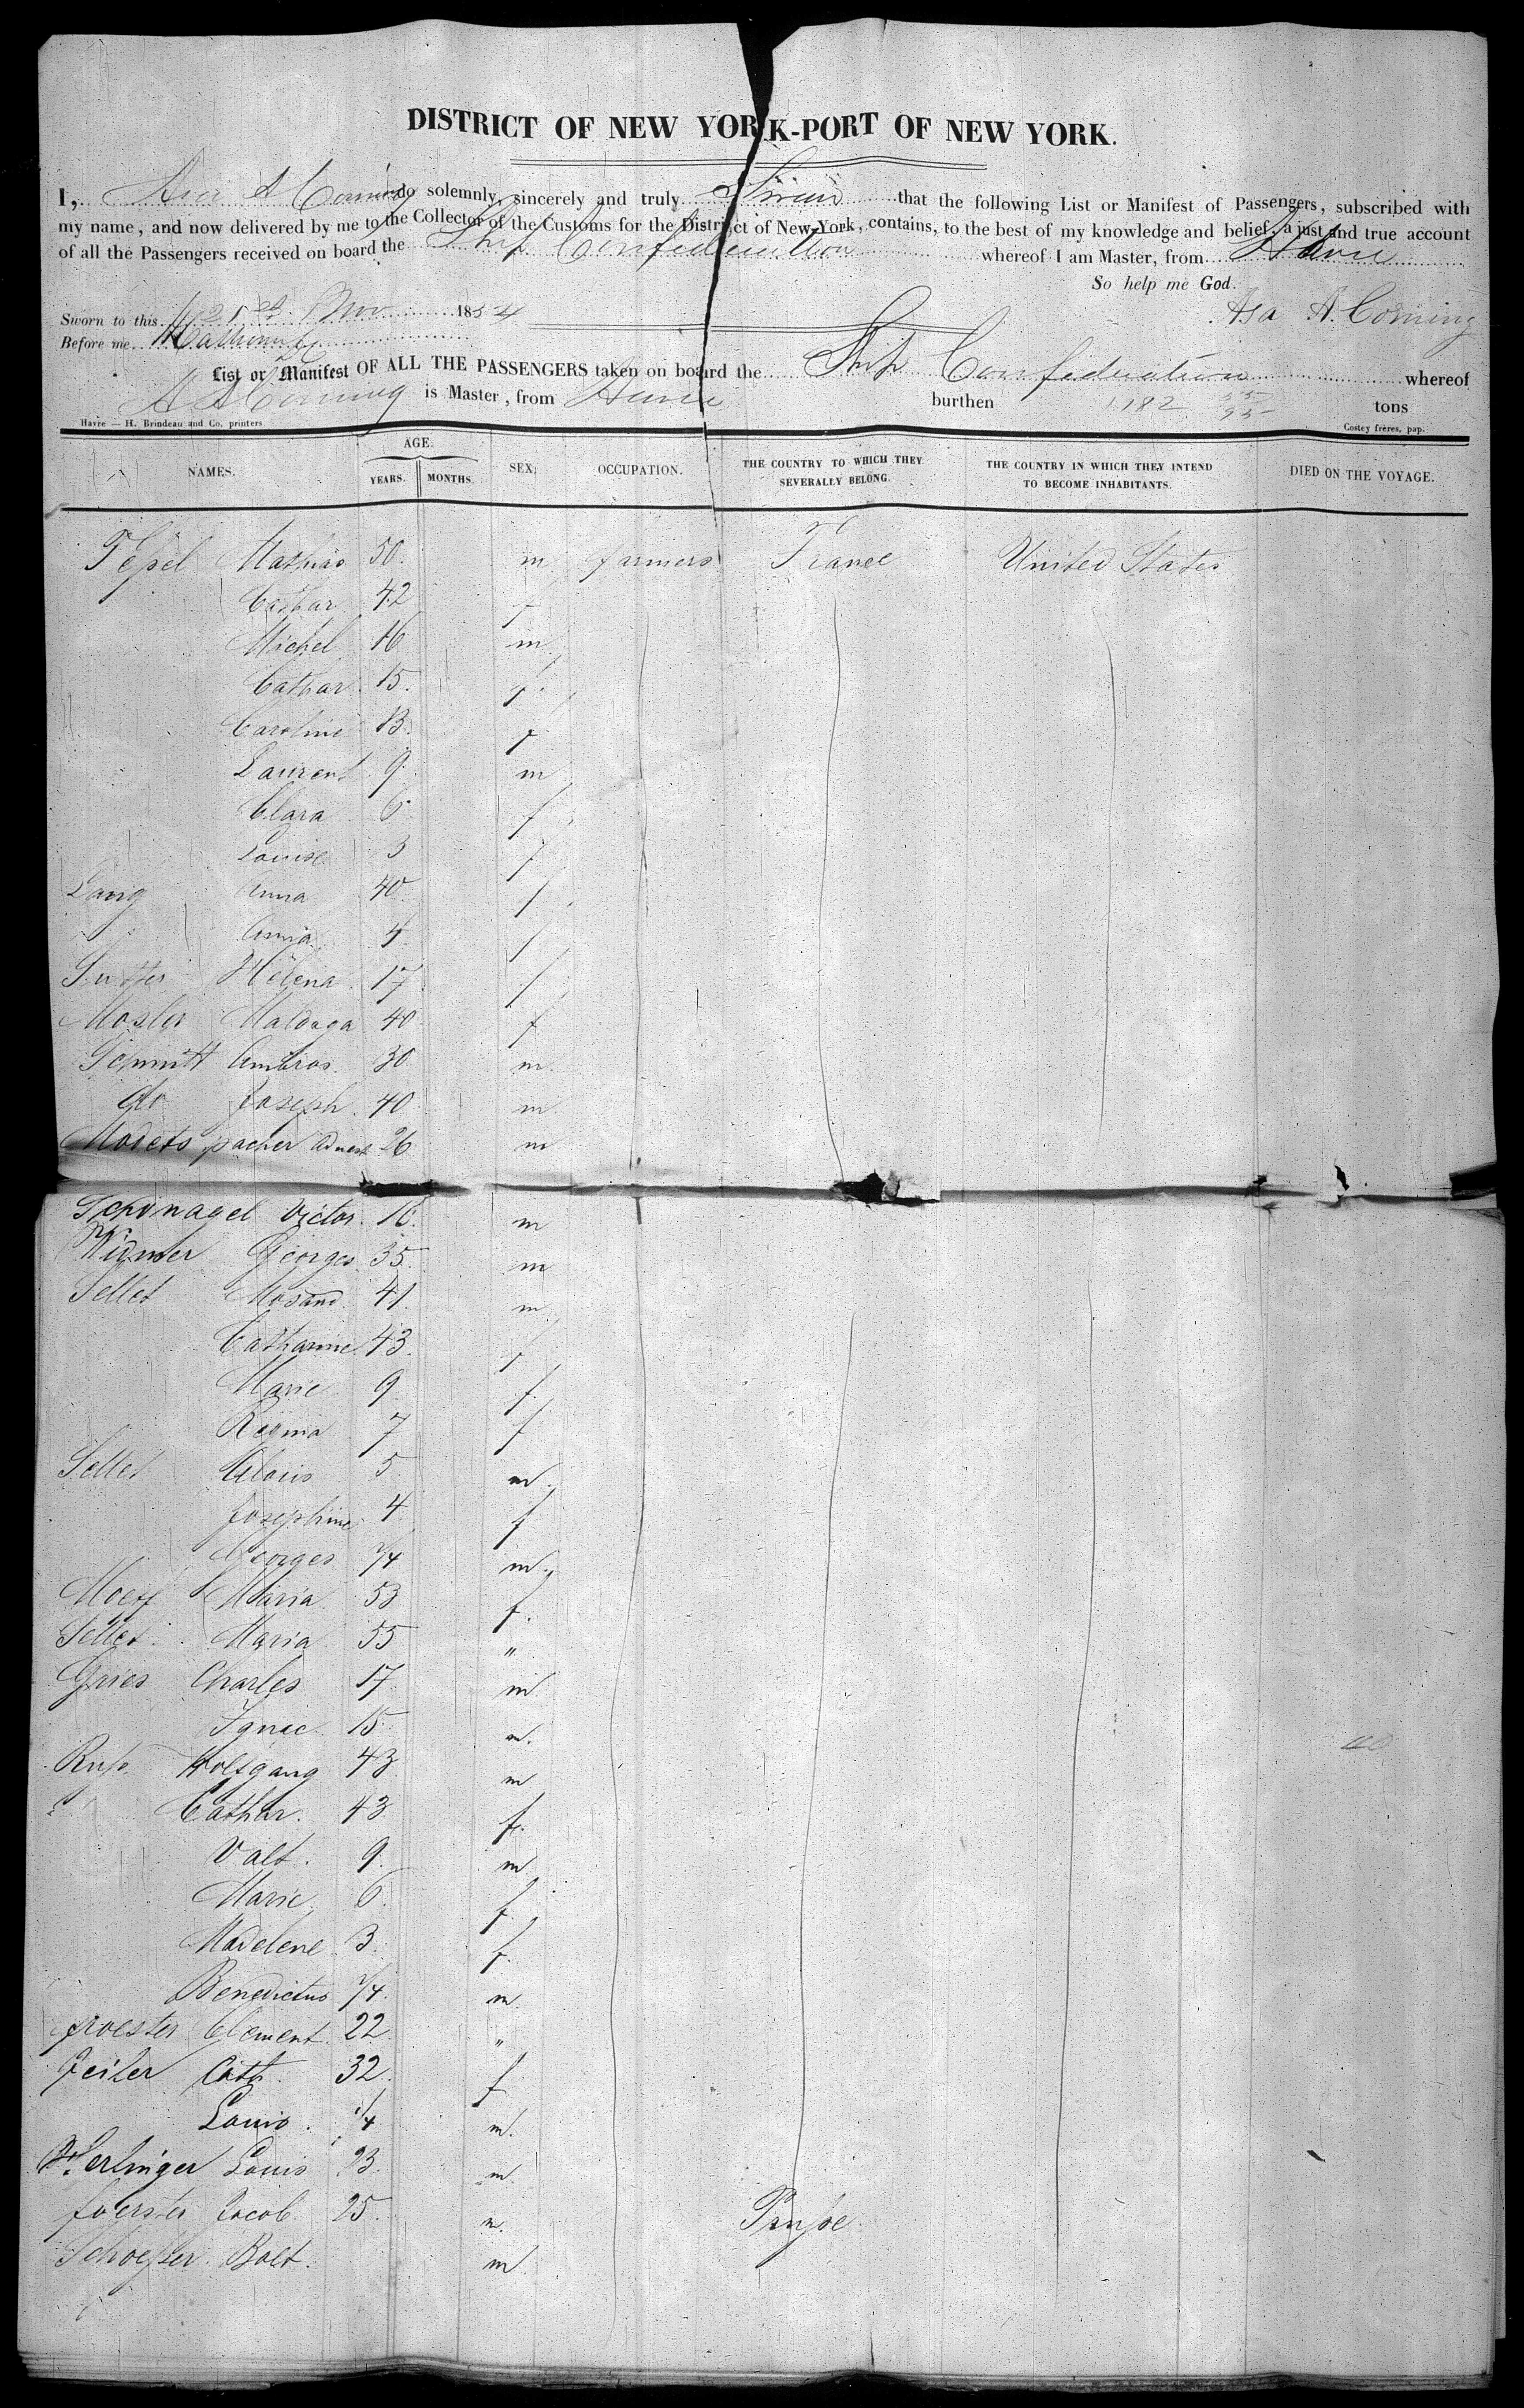 DISTRICT OF NEW YORK-PORT OF NEW YORK.
I, Asa A Corning do solemnly, sincerely and truly Swear that the following List or Manifest of Passengers, subscribed with
my name, and now delivered by me to the Collector of the Customs for the District of New-York, contains, to the best of my knowledge and belief, a just and true account
of all the Passengers received on board the Ship Confederation whereof I am Master, from Havre
So help me God.
Sworn to this 21st Nov 1854 Asa A. Corning
Before me
List or Manifest OF ALL THE PASSENGERS taken on board the Ship Confederation whereof
A A Corning is Master, from Havre burthen 1182 55/95 tons
Havre — H. Brindeau and Co, printers Costey frères, pap.
NAMES. AGE. YEARS. MONTHS. SEX. OCCUPATION. THE COUNTRY TO WHICH THEY SEVERALLY BELONG. THE COUNTRY IN WHICH THEY INTEND TO BECOME INHABITANTS. DIED ON THE VOYAGE.
Tepel Mathias 50. m farmers France United States
Cathar 42 f
Michel 16 m.
Cathar 15. f.
Caroline 13. f
Laurent 9. m
Clara 6 f
Louise 3 f
Lang Anna 40 f
Anna 4 f
Sutter Helena 17 f
Mosler 40 f
Schmitt Ambros. 30 m.
do Joseph. 40 m
26 m
Schonagel Victor. 16. m
Widmer Georges. 35. m
Sellet 41. m
Catharine 43. f
Marie 9 f.
Regina 7 f
Sellet Aloris 5 m.
Josephine 4 f
Georges 1/4 m.
Maria. 53 f.
Sellet Maria 55 "
Gries Charles 17 m.
Ignac. 15. m.
Rup. Wolfgang 43 m
Cathar. 43. f.
Valt. 9. m
Marie 6. f.
Madelene 3. f.
Benedictus 1/4. m.
froester Clement 22 "
Zeiler Cath. 32. f
Louis. 1/4 m.
Louis 23. m.
foerster Jacob. 25. m. Prusse
Balt. m.